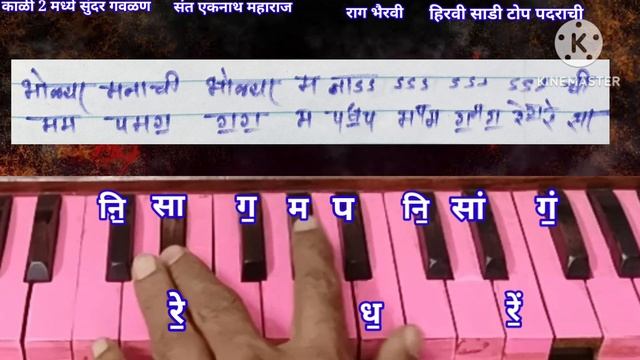 काळी 2 मध्ये सुंदर गवळण संत एकनाथ महाराज राग भैरवी हिरवी साडी टोप पदराची
KINEMASTER
भोळ्या मनाची भोळ्या म नाऽऽ ऽऽऽ ऽऽऽ ऽऽऽ ची
मम पमग॒ ग॒ग॒ म
नि॒ सा ग॒ म प नि॒ सां ग॒ं
रे॒ ध॒ रे॒ं